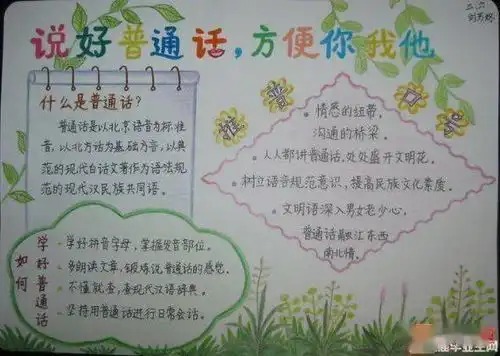 说好普通话,方便你我他
二.六
什么是普通话?
普通话是以北京语音为标准
音,以北方话为基础方音,以典
范的现代白话文著作为语法规
范的现代汉民族共同语。
推普口号
情感的纽带,
沟通的桥梁。
· 人人都讲普通话,处处盛开文明花。
· 树立语音规范意识,提高民族文化素质。
· 文明语深入男女老少心,
普通话融汇东西
南北情。
如何学好普通话
· 学好拼音字母,掌握发音部位。
· 多朗读文章,锻炼说普通话的感觉。
· 不懂就查,查现代汉语辞典。
· 坚持用普通话进行日常会话。